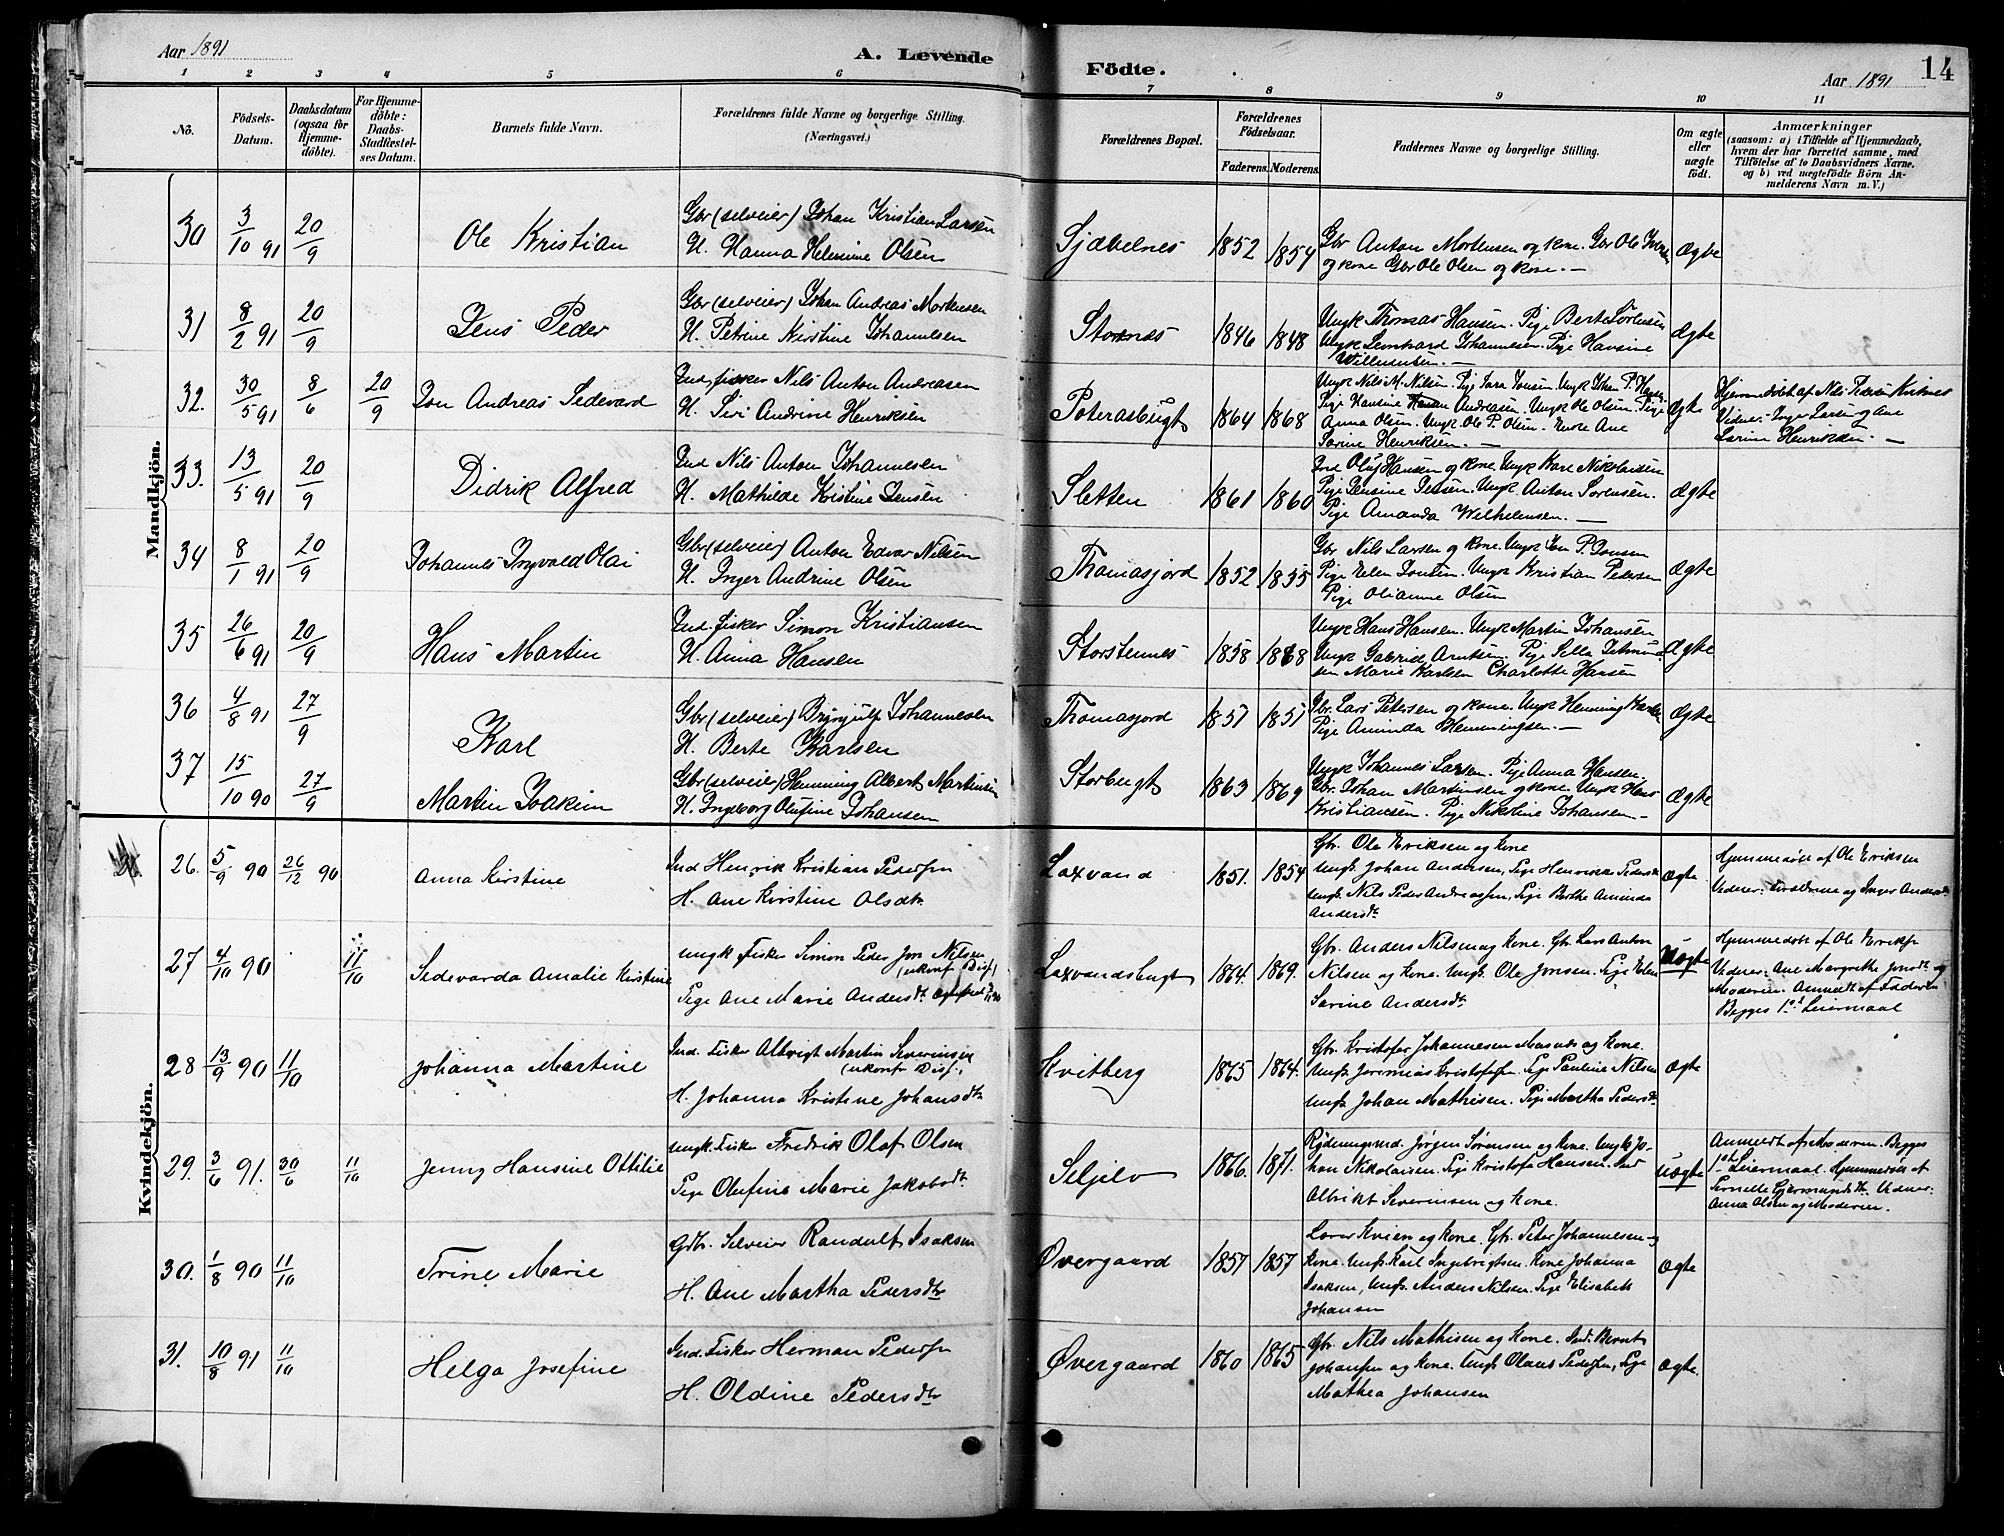 Aar 1891
A. Levende
Födte.
Aar 1891
14
1 2 3 4 5 6 7 8 9 10 11
No.
Födsels-
Datum.
Daabsdatum
(ogsaa for
Hjemme-
döbte).
For Hjemme-
döbte:
Daabs-
Stadfæstel-
ses Datum.
Barnets fulde Navn.
Forældrenes fulde Navne og borgerlige Stilling.
(Næringsvei.)
Forældrenes Bopæl.
Forældrenes
Födselsaar.
Faderens. Moderens.
Faddernes Navne og borgerlige Stilling.
Om ægte
eller
uægte
födt.
Anmærkninger
(saasom: a) i Tilfælde af Hjemmedaab,
hvem der har forrettet samme, med
Tilföielse af to Daabsvidners Navne.
og b) ved uægtefödte Börn An-
melderens Navn m. V.)
Mandkjön.
30 3/10 91 20/9
Ole Kristian
Gbr (selveier) Johan Kristian Larsen
H. Hanna Helmine Olsen
Sjåvelnes 1852 1854
Gbr Anton Mortensen og kone. Gbr Ole Iversen
og kone Gbr Ole Olsen og kone. —
Ægte
31 8/2 91 20/9
Jens Peder
Gbr (selveier) Johan Andreas Mortensen
H. Petrine Kirstine Johannesen
Storsnes 1846 1848
Ungk Thomas Hansen. Pige Berte Sörensen
Ungk Leonhard Johannesen. Pige Hansine
Willumsen. —
Ægte
32. 30/5 91 8/6 20/9
Jon Andreas Sedevard
Ind. fisker Nils Anton Andreasen
H. Siri Andrine Henriksen
Poterasbugt 1864 1868
Ungk Nils M. Nilsen. Pige Sara Jonsen. Ungk Johan P.
Pige Hansine Andreasen. Ungk Ole Olsen. Pige
Anna Olsen. Ungk Ole P. Olsen. Enke Ane
Sarine Henriksen. —
Ægte
Hjemmedöbt af Nils Pedersen
Vidner: Inger Larsen og Ane
Sarine Henriksen. —
33. 13/5 91 20/9
Didrik Alfred
Ind Nils Anton Johannesen
H. Mathilde Kristine Jensen
Sletten 1861 1860
Ind Oluf Hansen og kone. Ungk Kare Nikolaisen
Pige Jensine Jessen. Ungk Anton Sorensen.
Pige Amanda Wilhelmsen. —
Ægte
34 8/1 91 20/9
Johannes Ingvald Olai
Gbr (selveier) Anton Edvar Nilsen
H. Inger Andrine Olsen
Thomasjord 1852 1855
Gbr Nils Larsen og kone. Ungk Jon P. Jonsen
Pige Elen Jonsen. Ungk Kristian Pedersen
Pige Olianne Olsen
Ægte
35 26/6 91 20/9
Hans Martin
Ind. fisker Simon Kristiansen
H. Anna Hansen
Storstennes 1858 1868
Ungk Hans Hansen. Ungk Martin Johansen
Ungk Gabriel Arntsen. Pige Sella
sen Marie Karlsen Charlotte Hansen
Ægte
36 4/8 91 27/9
Karl
Gbr (selveier) Brynjulf Johannesen
H. Berte Karlsen
Thomasjord 1857 1851
Gbr. Lars Petersen og kone. Ungk Henning
Pige Aminda Henningsen. —
Ægte
37 15/10 90 27/9
Martin Joakim
Gbr (selveier) Henning Albert Martinsen
H. Ingeborg Olufine Johansen
Storbugt 1863 1869
Ungk Johannes Larsen. Pige Anna Hansen.
Gbr. Johan Martinsen og kone. Ungk Hans
Kristiansen. Pige Nikoline Johansen —
Ægte
Kvindekjön.
26. 5/9 90 26/12 90
Anna Kirstine
Ind Henrik Kristian Pedersen
H. Ane Kirstine Olsdtr.
Laxvand 1851. 1854
Gbr. Ole Eriksen og Kone
Ungk. Johan Andersen, Pige Henrikke Pedersdtr
Ungk. Nils Peder Andreassen, Pige Berthe Aminda
Andersdtr
Ægte
Hjemmedöbt af Ole Eriksen
Vidner: Forældrene og Inger Andersdtr
27 4/10 90 11/10
Sedevarda Amalie Kirstine
Ungk Fisker Simon Peder Jon Nilsen
(ukonf Diss.)
Pige Ane Marie Andersdtr
Laxvandsbugt 1864. 1869.
Gbr. Anders Nilsen og Kone. Gbr Lars Anton
Nilsen og Kone. Ungk. Ole Jonsen. Pige Elen
Sarine Andersdtr
Uægte
Hjemmedöbt af Ole Eriksen
Vidner: Ane Margrethe Jonsdtr og
Moderen. Anmeldt af Faderen
Begges 1ste Leiermaal
28 13/9 90 11/10
Johanna Martine
Ind. Fisker Albrigt Martin Severinsen
(ukonf Diss.)
H. Johanna Kristine Johansdtr
Kvitberg 1865 1864.
Gbr. Kristofer Johannesen Masnes og Kone.
Ungk. Jeremias Kristoffersen. Pige Pauline Nilsen
Ungk. Johan Mathisen. Pige Martha Pedersdtr
Ægte
29. 3/6 91. 30/6 11/10
Jenny Hansine Ottilie
Ungk. Fisker Fredrik Olaf Olsen
Pige Olufine Marie Jakobsdtr
Seljelv 1866. 1871.
Rydningsmd. Jörgen Sörensen og Kone. Ungk Jo-
han Nikolaisen. Pige Kristofa Hansen. Ind
Albrikt Severinsen og Kone.
Uægte
Anmeldt af Moderen. Begges
1ste Leiermaal. Hjemmedöbt af
Pernille Gjermundsdtr. Vidner:
Anna Olsen og Moderen.
30. 1/8 90 11/10
Trine Marie
Gbr. Selveier Randulf Isaksen
H. Ane Martha Pedersdtr
Øvergaard 1857 1857
Lærer Kvien og Kone. Gbr. Peter Johannesen og
Kone. Ungk. Karl Ingebrigtsen. Kone Johanna
Isaksen, Ungk. Anders Nilsen. Pige Elisabeth
Johansen
Ægte
31. 10/8 91 11/10
Helga Josefine
Ind. Fisker Herman Pedersen
H. Oldine Pedersdtr
Øvergaard 1860 1865
Gbr. Nils Mathisen og Kone. Ind. Bernt
Johansen og Kone. Ungk. Olaus Pedersen, Pige
Mathea Johansen
Ægte.